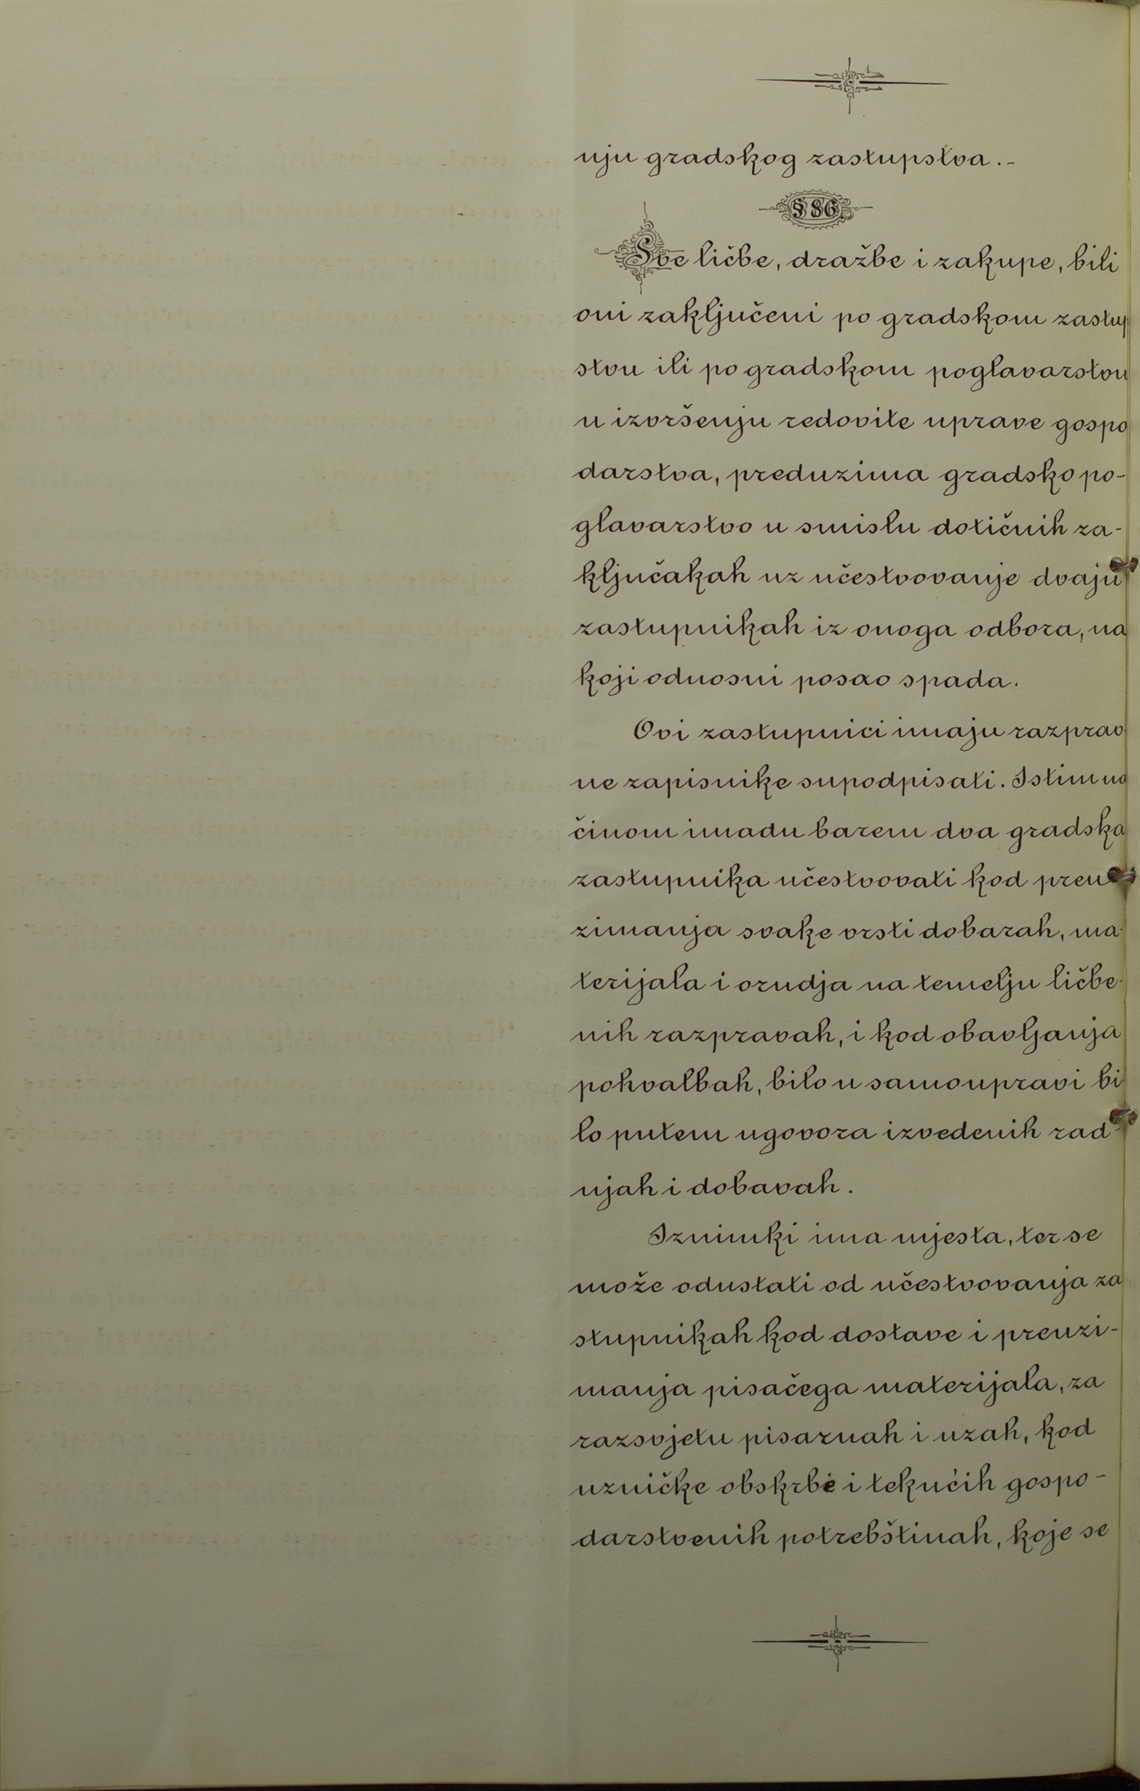 nju gradskog zastupstva.-
§ 86.
Sve ličbe, dražbe i zakupe, bili
oni zaključeni po gradskom zastup
stvu ili po gradskom poglavarstvu
u izvršenju redovite uprave gospo
darstva, preduzima gradsko po-
glavarstvo u smislu dotičnih za-
ključakah uz učestvovanje dvaju
zastupnikah iz onoga odbora, na
koji odnosni posao spada.
Ovi zastupnici imaju razprav
ne zapisnike supodpisati. Istim na
činom imadu barem dva gradska
zastupnika učestvovati kod preu
zimanja svake vrsti dobarah, ma-
terijala i orudja na temelju ličbe-
nih razpravah, i kod obavljanja
pohvalbah, bilo u samoupravi bi
lo putem ugovora izvedenih rad-
njah i dobavah.
Iznimki ima mjesta, ter se
može odustati od učestvovanja za
stupnikah kod dostave i preuzi-
manja pisaćega materijala, za
razsvjetu pisarnah i uzah, kod
uzničke obskrbe i tekućih gospo-
darstvenih potrebština​h, koje se